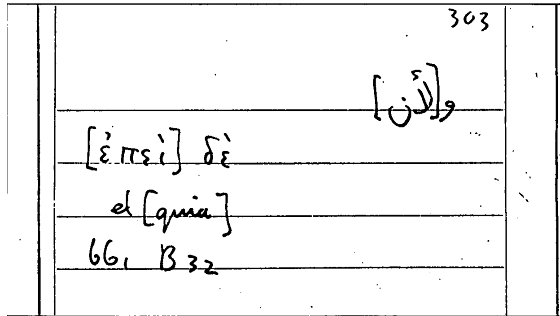 303
و[لأن]
[ἐπεὶ] δὲ
et [quia]
66, B 32